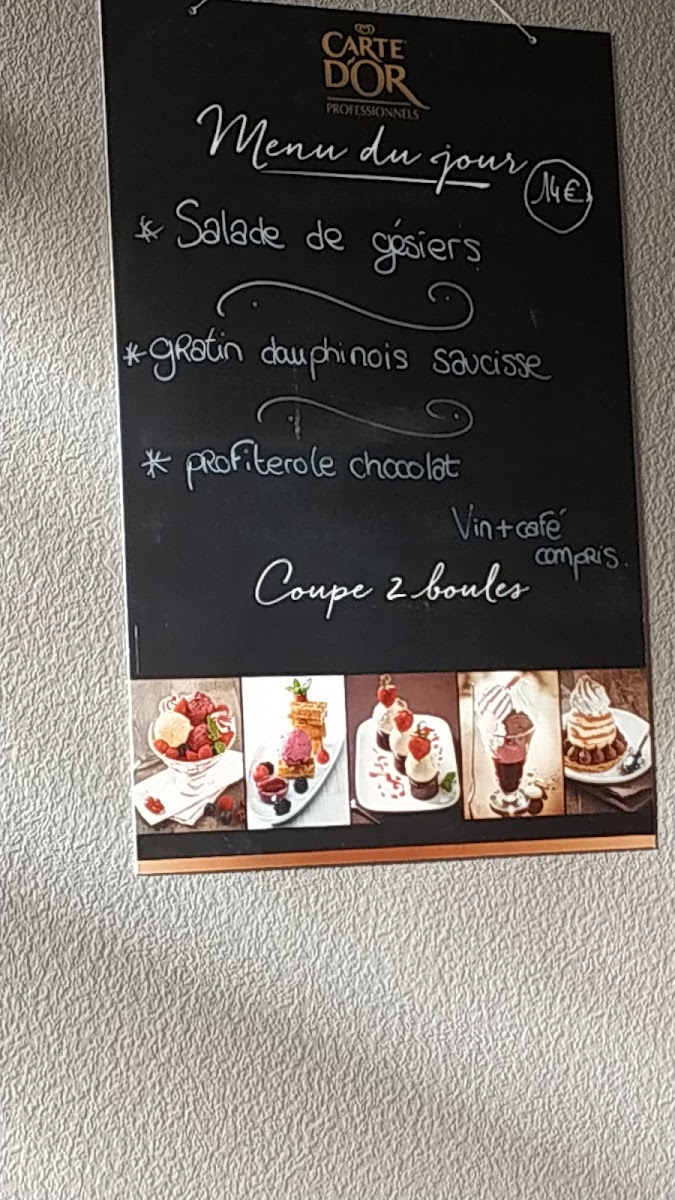 CARTE
D'OR
PROFESSIONNELS
Menu du jour
14€
* Salade de gésiers
* gratin dauphinois saucisse
* profiterole chocolat
Vin + café
compris.
Coupe 2 boules